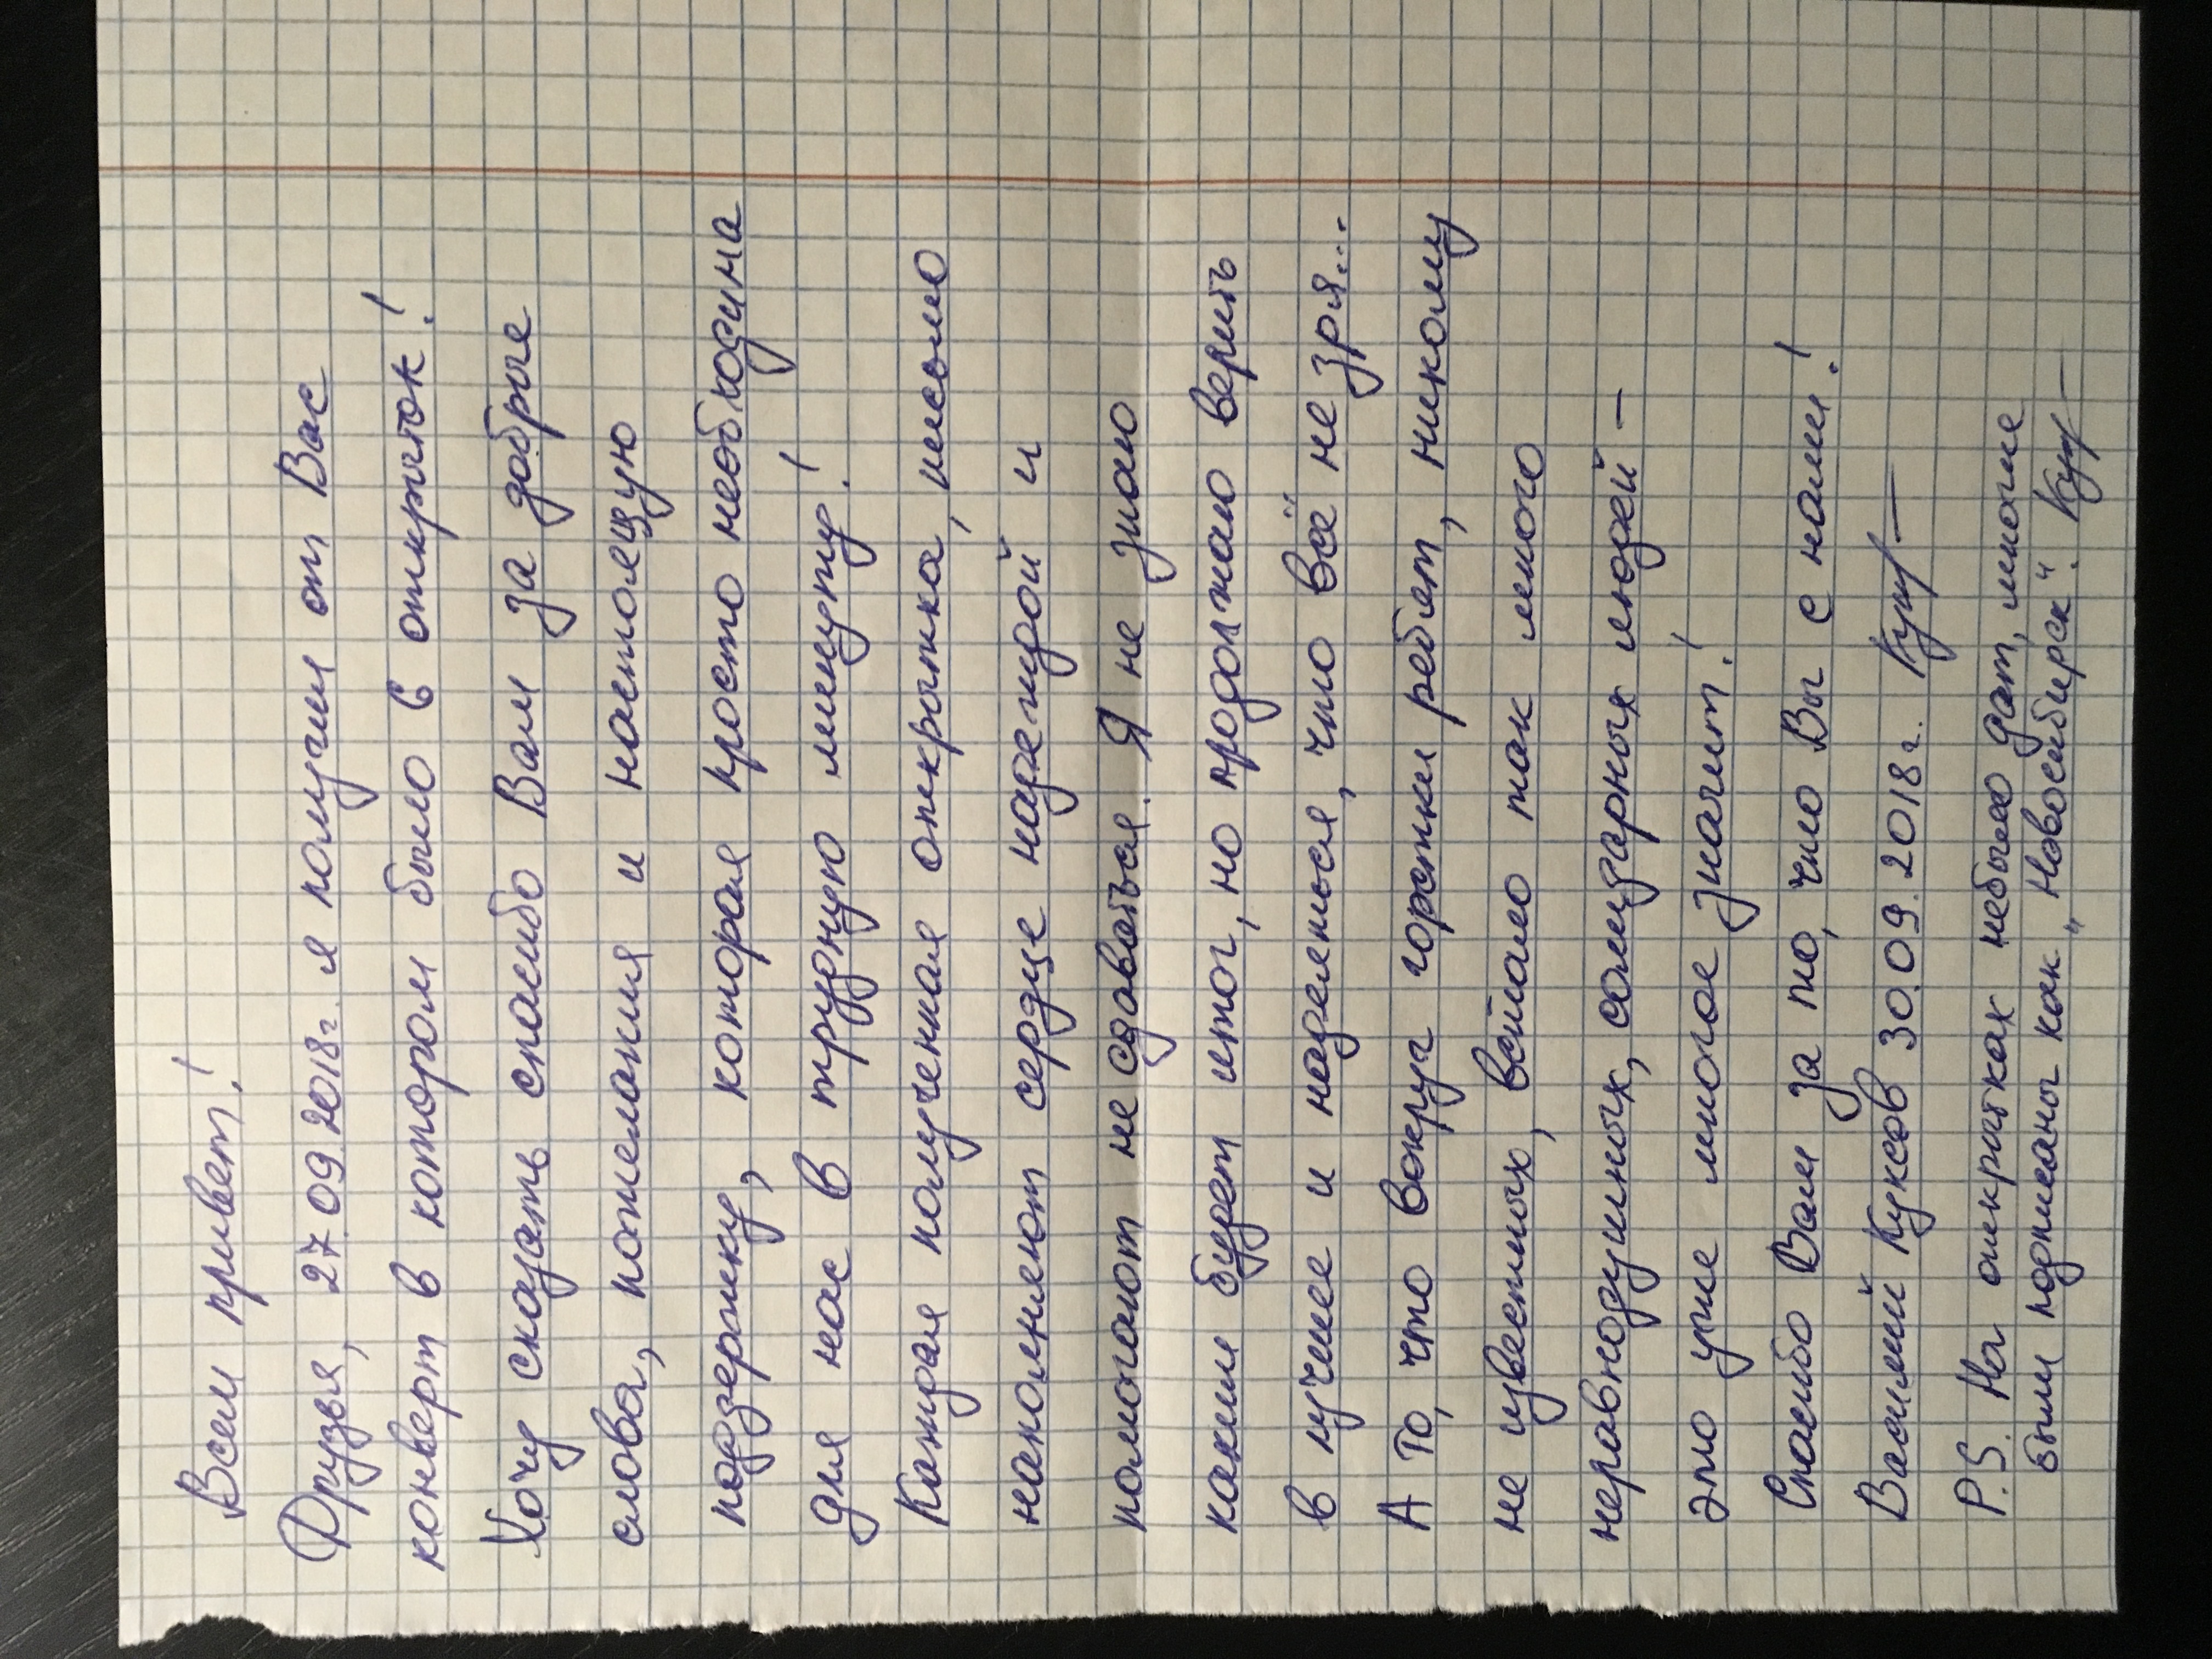 Всем привет!
Друзья, 27.09.2018г. я получил от Вас
конверт в котором было 6 открыток!
Хочу сказать спасибо Вам за добрые
слова, пожелания и настоящую
подзержку, которая просто необходима
для нас в трудную минуту!
Каждая полученная открытка, письмо
наполняют сердце надеждой и
помогают не сдаваться. Я не знаю
каким будет итог, но продолжаю верить
в лучшее и надеяться, что всё не зря...
А то, что вокруг горстки ребят, никому
не известных, встало так много
неравнодушных, солидарных людей –
это уже многое значит!
Спасибо Вам за то, что Вы с нами!
Василий Куксов 30.09.2018г. Кук
P.S. На открытках небыло дат, многие
были подписаны как „Новосибирск". Кук